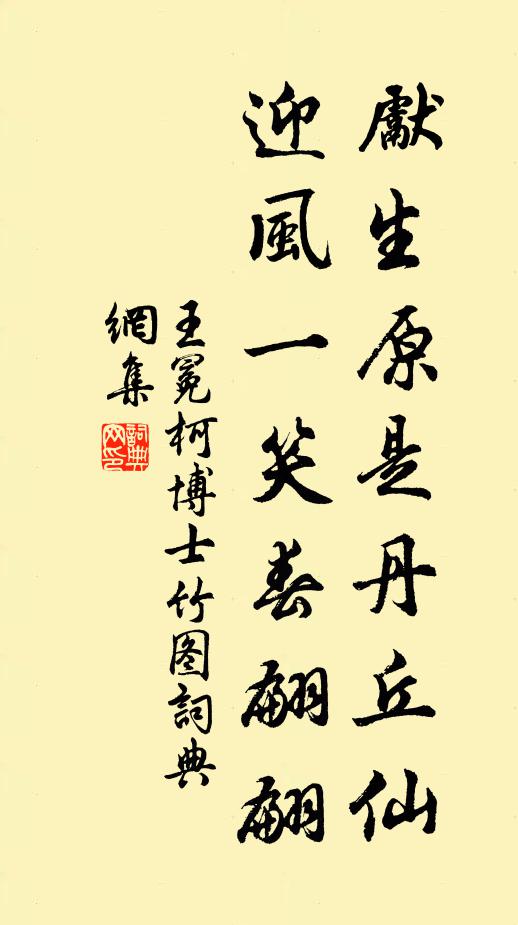 獻生原是丹丘仙
迎風一笑春翩翩
王冕柯博士竹图詞典
網集
詞典
网印